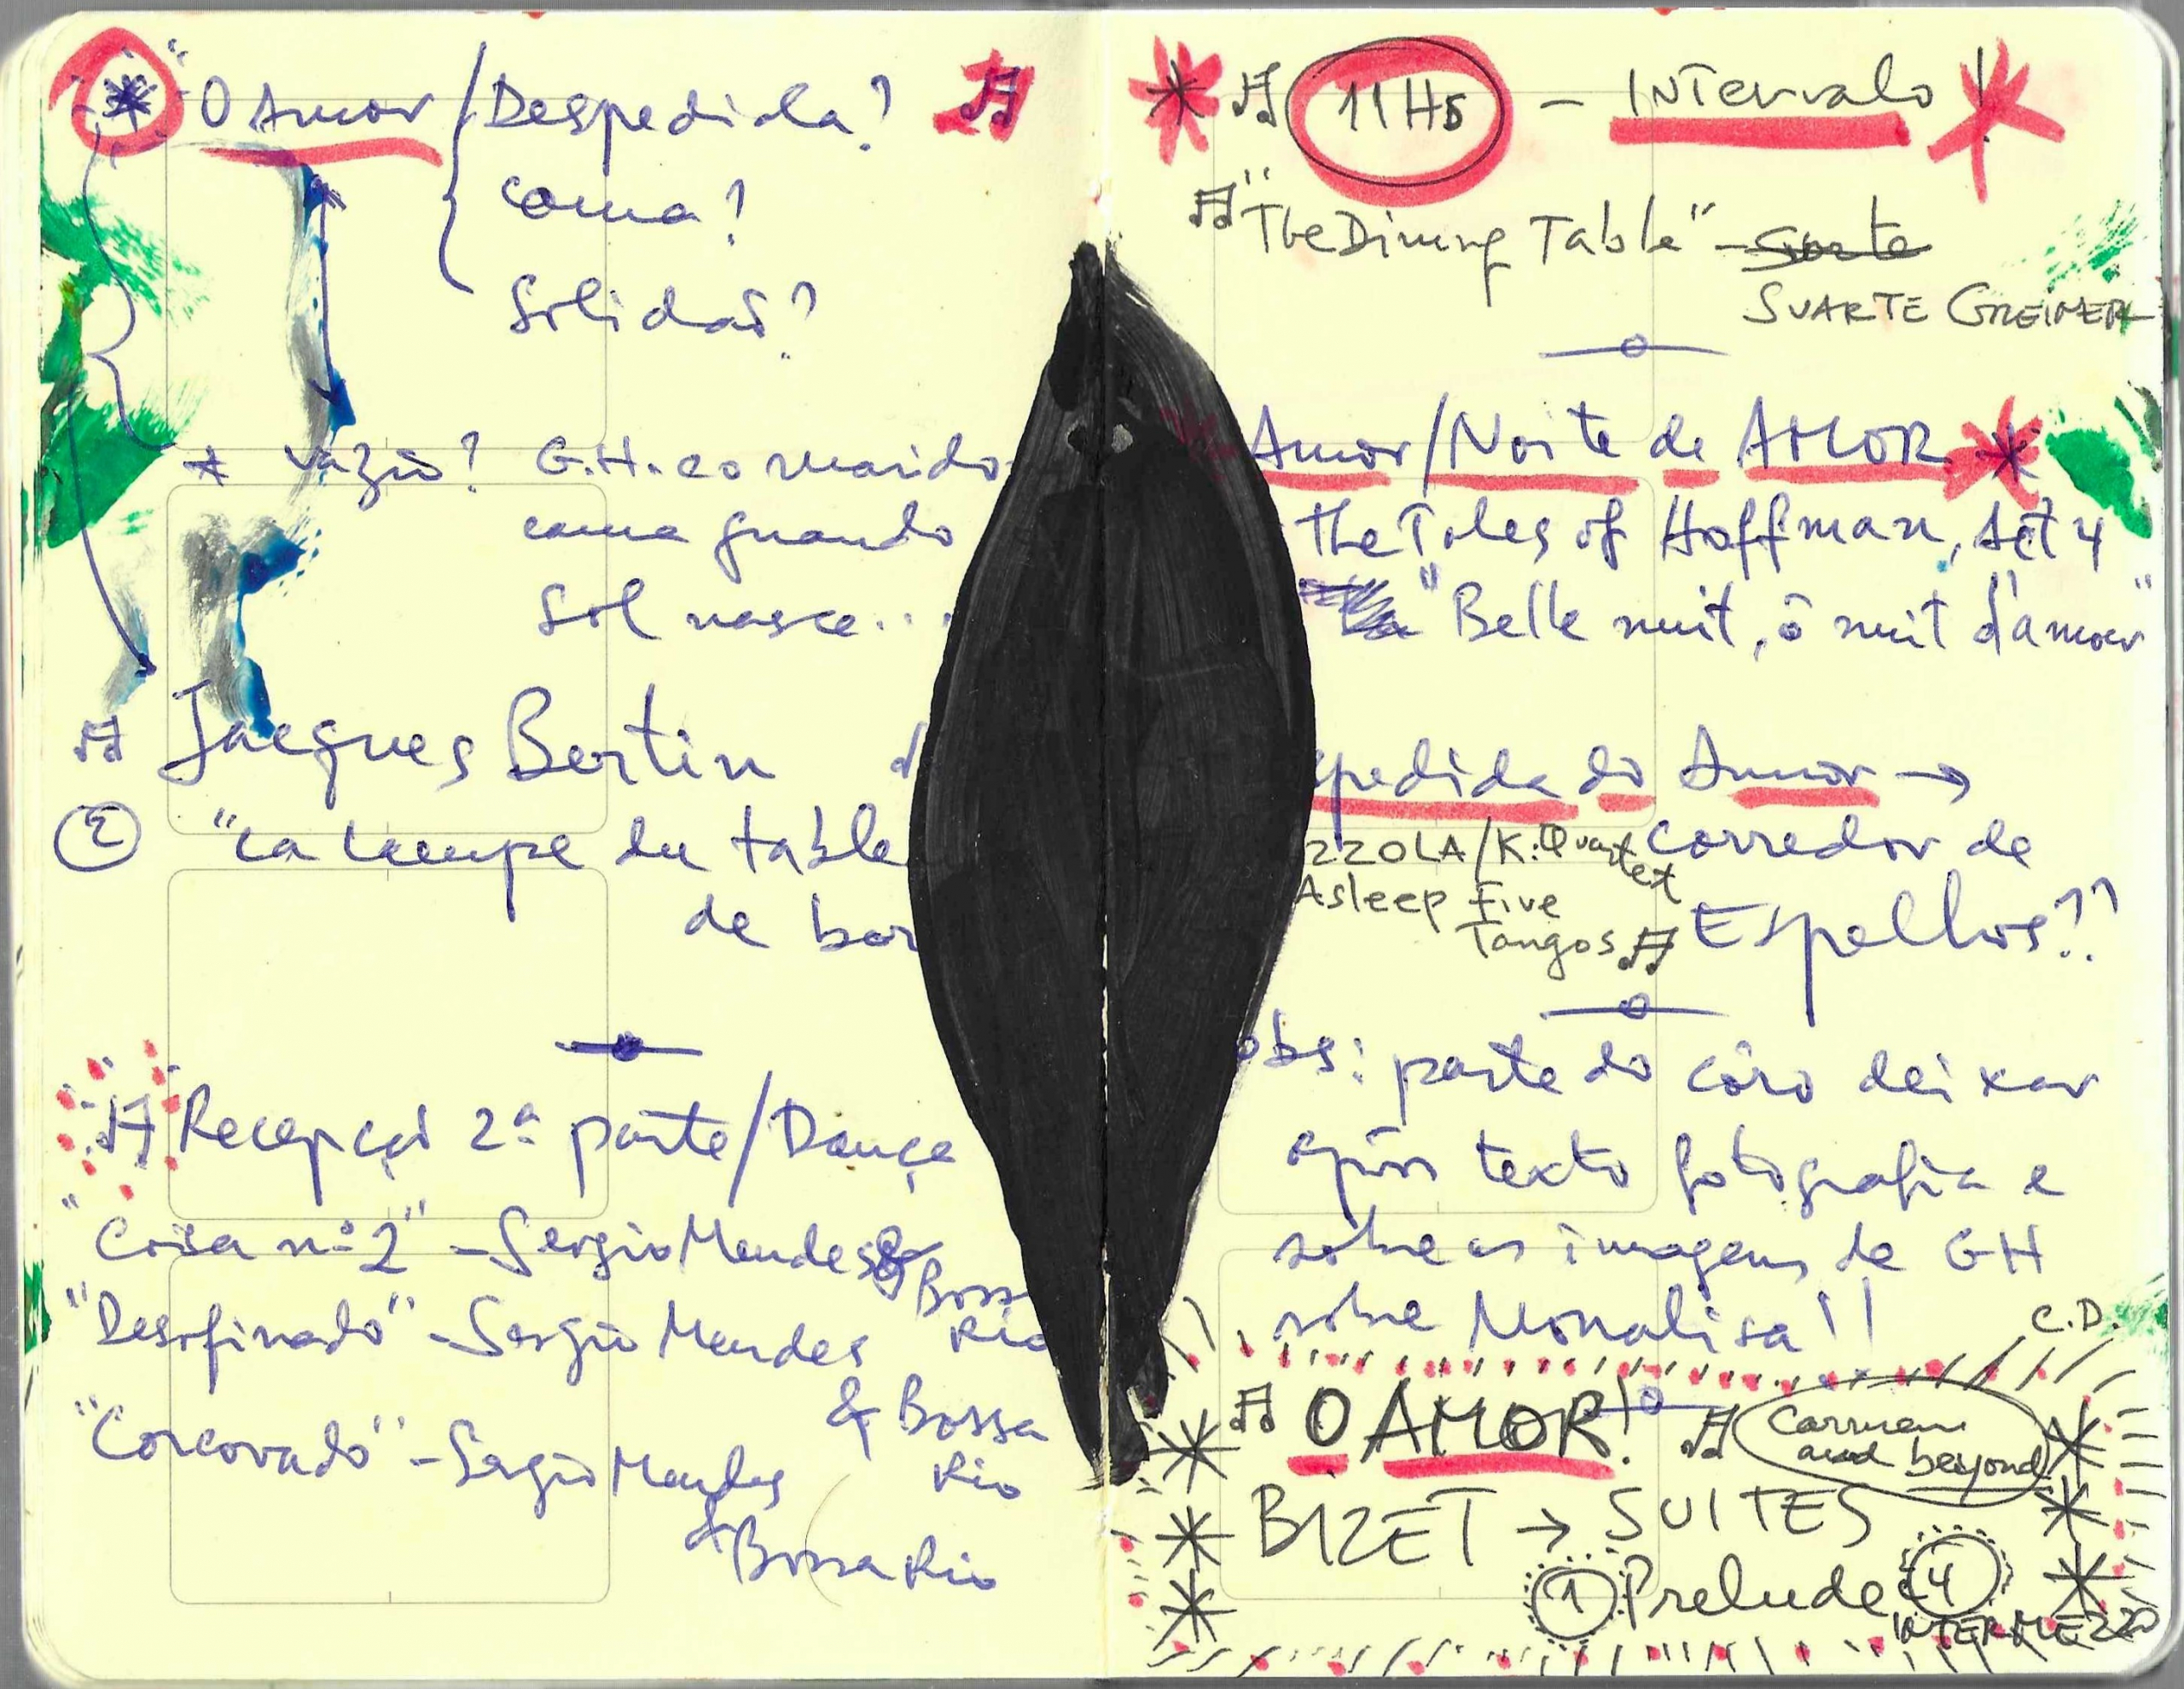 "O Amor / Despedida?
cama?
Solidão?
* vazio? G.H. e o marido
cama quando
Sol nasce...
Jacques Bertin
② "La lampe du table
de bor
Recepção 2ª parte/Dança
"Coisa nº 2" - Sergio Mendes &
Boss
Rio
"Desafinado" - Sergio Mendes
& Bossa
Rio
"Corcovado" - Sergio Mendes
& Bossa Rio
* 11 Hs - Intervalo!
"The Dining Table" - Svarte
SVARTE GREINER
Amor/Noite de AMOR *
the Tales of Hoffman, Act 4
"Belle nuit, ô nuit d'amour"
pedida do Amor →
corredor de
Espelhos??
ZZOLA/K. Quartet
Asleep Five
Tangos
obs: parte do côro deixar
após texto fotografia e
sobre as imagens de GH
sobre Monalisa!!
C.D.
O AMOR!
Carmen
and beyond
* BIZET → SUITES *
① Prelude ④
INTERMEZZO